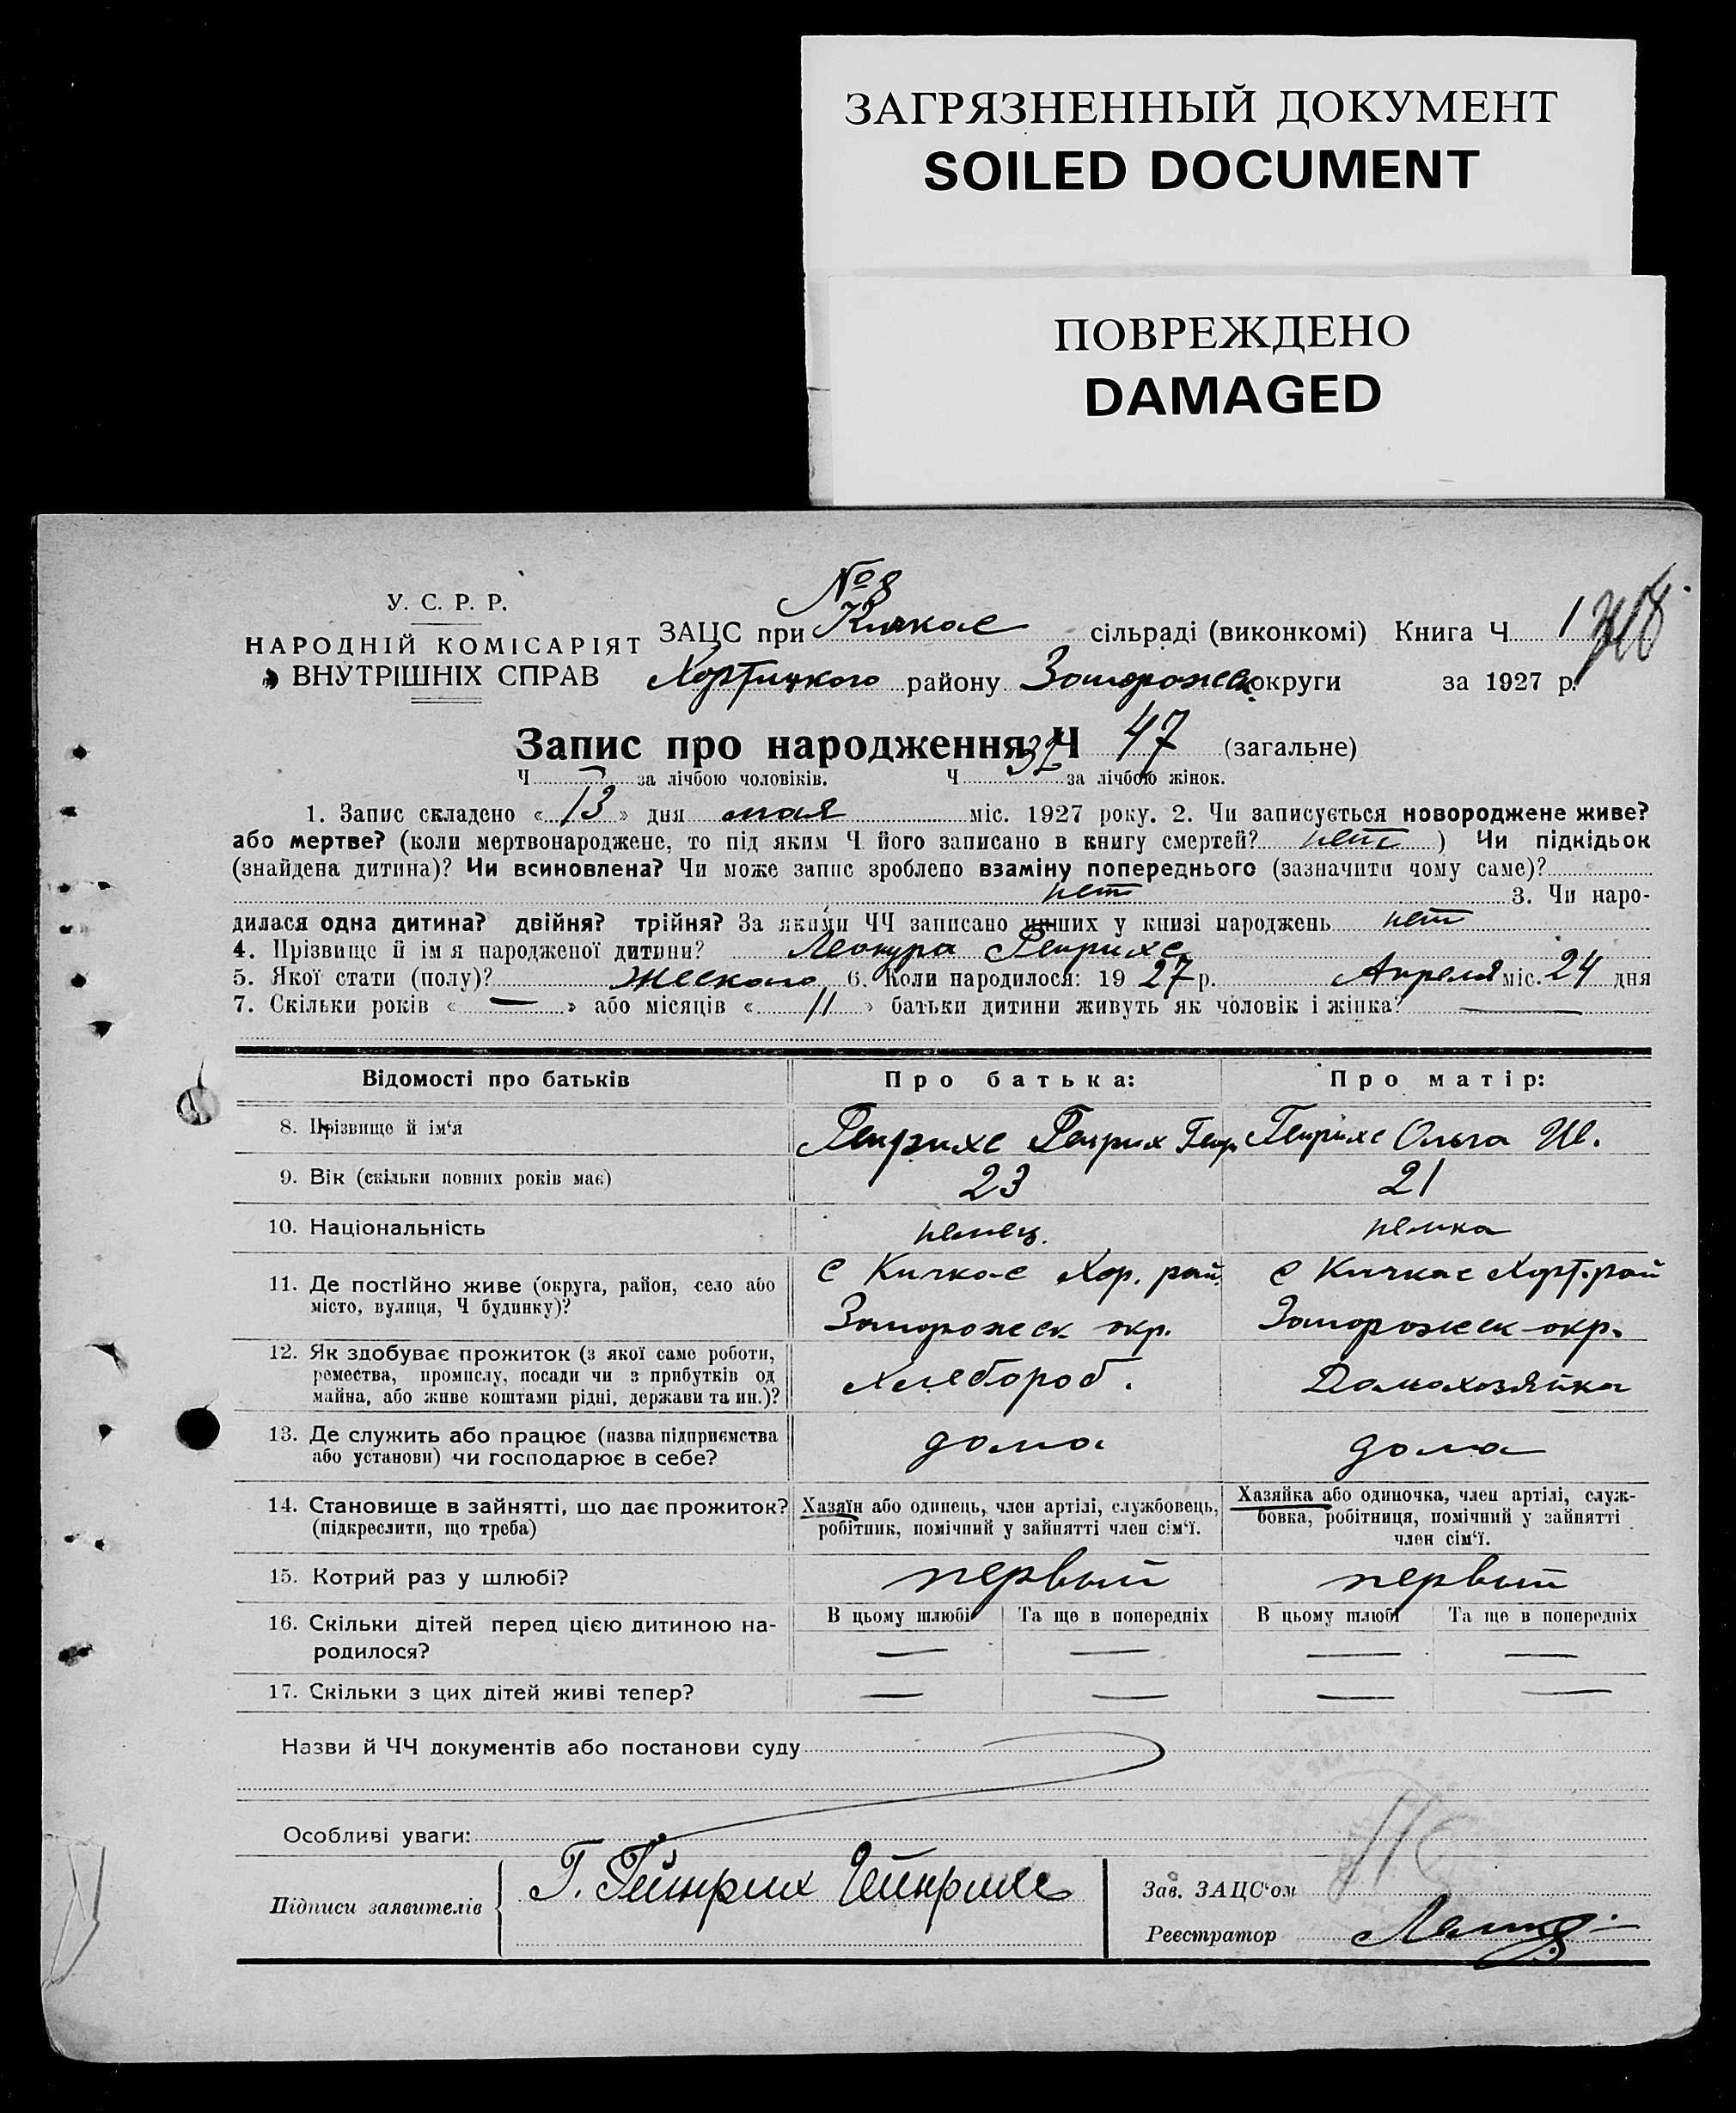 ЗАГРЯЗНЕННЫЙ ДОКУМЕНТ
SOILED DOCUMENT
ПОВРЕЖДЕНО
DAMAGED
№ 8
У. С. Р. Р.
НАРОДНІЙ КОМІСАРІЯТ
ВНУТРІШНІХ СПРАВ
ЗАЦС при Кичкас сільраді (виконкомі) Книга Ч 1
Хортицкого району Запорожск округи за 1927 р.
Запис про народження Ч 47 (загальне)
Ч — за лічбою чоловіків. Ч 32 за лічбою жінок.
1. Запис складено « 13 » дня мая міс. 1927 року. 2. Чи записується новороджене живе?
або мертве? (коли мертвонароджене, то під яким Ч його записано в книгу смертей? нет ) Чи підкідьок
(знайдена дитина)? Чи всиновлена? Чи може запис зроблено взаміну попереднього (зазначити чому саме)?
нет 3. Чи наро-
дилася одна дитина? двійня? трійня? За якими ЧЧ записано инших у книзі народжень нет
4. Прізвище й імя народженої дитини? Генрихс
5. Якої статі (полу)? Женского 6. Коли народилося: 19 27 р. Апреля міс. 24 дня
7. Скільки років « — » або місяців « 11 » батьки дитини живуть як чоловік і жінка? —
Відомості про батьків Про батька: Про матір:
8. Прізвище й ім‘я Генрихс Генрих Генр. Генрихс Ольга Ив.
9. Вік (скільки повних років має) 23 21
10. Національність немец. немка
11. Де постійно живе (округа, район, село або с Кичкас Хор. рай. с Кичкас Хорт. рай
місто, вулиця, Ч будинку)? Запорожск окр. Запорожск окр.
12. Як здобуває прожиток (з якої саме роботи,
ремества, промислу, посади чи з прибутків од Хлебороб. Домохозяйка
майна, або живе коштами рідні, держави та ин.)?
13. Де служить або працює (назва підприємства дома дома
або установи) чи господарює в себе?
14. Становище в зайнятті, що дає прожиток? Хазяїн або одинець, член артілі, службовець, Хазяйка або одиночка, член артілі, служ-
(підкреслити, що треба) робітник, помічний у зайнятті член сім‘ї. бовка, робітниця, помічний у зайнятті
член сім‘ї.
15. Котрий раз у шлюбі? первый первый
16. Скільки дітей перед цією дитиною на- В цьому шлюбі Та ще в попередніх В цьому шлюбі Та ще в попередніх
родилося? — — — —
17. Скільки з цих дітей живі тепер? — — — —
Назви й ЧЧ документів або постанови суду
Особливі уваги:
Підписи заявителів Г. Гейнрих Гейнрихс
Зав. ЗАЦС‘ом
Реєстратор